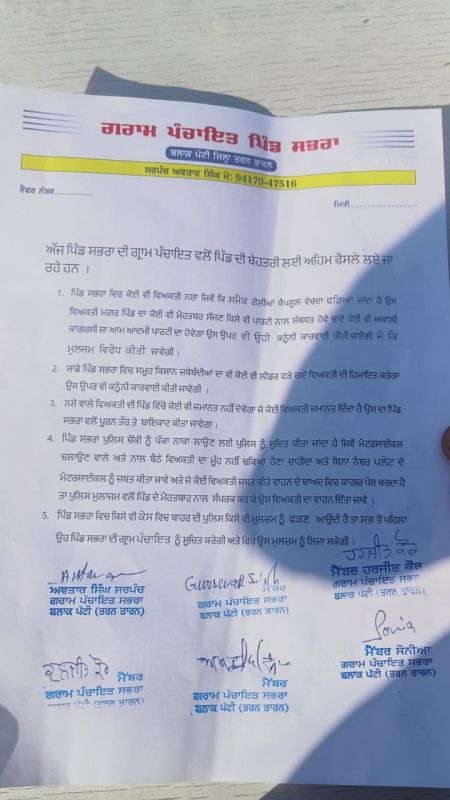 ਗਰਾਮ ਪੰਚਾਇਤ ਪਿੰਡ ਸਭਰਾ
ਬਲਾਕ ਪੱਟੀ ਜਿਲ੍ਹਾ ਤਰਨ ਤਾਰਨ
ਸਰਪੰਚ ਅਵਤਾਰ ਸਿੰਘ ਮੋ: 94179-47516
ਰੈਫਰ ਨੰਬਰ.............
ਮਿਤੀ........................
ਅੱਜ ਪਿੰਡ ਸਭਰਾ ਦੀ ਗ੍ਰਾਮ ਪੰਚਾਇਤ ਵਲੋਂ ਪਿੰਡ ਦੀ ਬੇਹਤਰੀ ਲਈ ਅਹਿਮ ਫੈਸਲੇ ਲਏ ਜਾ
ਰਹੇ ਹਨ ।
1. ਪਿੰਡ ਸਭਰਾ ਵਿਚ ਕੋਈ ਵੀ ਵਿਅਕਤੀ ਨਸ਼ਾ ਜਿਵੇਂ ਕਿ ਸਮੈਕ ਗੋਲੀਆਂ ਕੈਪਸੂਲ ਵੇਚਦਾ ਫੜਿਆ ਜਾਂਦਾ ਹੈ ਉਸ
ਵਿਅਕਤੀ ਮਗਰ ਪਿੰਡ ਦਾ ਕੋਈ ਵੀ ਮੋਹਤਬਰ ਸੱਜਣ ਕਿਸੇ ਵੀ ਪਾਰਟੀ ਨਾਲ ਸਬੰਧਤ ਹੋਵੇ ਚਾਏ ਕੋਈ ਵੀ ਅਕਾਲੀ
ਕਾਂਗਰਸੀ ਜਾ ਆਮ ਆਦਮੀ ਪਾਰਟੀ ਦਾ ਹੋਵੇਗਾ ਉਸ ਉਪਰ ਵੀ ਉਹੀ ਕਨੂੰਨੀ ਕਾਰਵਾਈ ਕੀਤੀ ਜਾਏਗੀ ਜੋ ਕਿ
ਮੁਲਜਮ ਵਿਰੋਧ ਕੀਤੀ ਜਾਵੇਗੀ ।
2. ਸਾਡੇ ਪਿੰਡ ਸਭਰਾ ਵਿਚ ਸਮੂਹ ਕਿਸਾਨ ਜਥੇਬੰਦੀਆਂ ਦਾ ਵੀ ਕੋਈ ਵੀ ਲੀਡਰ ਫੜੇ ਗਏ ਵਿਅਕਤੀ ਦੀ ਹਿਮਾਇਤ ਕਰੇਗਾ
ਉਸ ਉਪਰ ਵੀ ਕਨੂੰਨੀ ਕਾਰਵਾਈ ਕੀਤੀ ਜਾਵੇਗੀ ।
3. ਨਸ਼ੇ ਵਾਲੇ ਵਿਅਕਤੀ ਦੀ ਪਿੰਡ ਵਿੱਚੋ ਕੋਈ ਵੀ ਜਮਾਨਤ ਨਹੀਂ ਦੇਵੇਗਾ ਜੇ ਕੋਈ ਵਿਅਕਤੀ ਜਮਾਨਤ ਦਿੰਦਾ ਹੈ ਉਸ ਦਾ ਪਿੰਡ
ਸਭਰਾ ਵਲੋਂ ਪੂਰਨ ਤੌਰ ਤੇ ਬਾਈਕਾਟ ਕੀਤਾ ਜਾਵੇਗਾ ।
4. ਪਿੰਡ ਸਭਰਾ ਪੁਲਿਸ ਚੌਕੀ ਨੂੰ ਪੱਕਾ ਨਾਕਾ ਲਾਉਣ ਲਈ ਪੁਲਿਸ ਨੂੰ ਸੂਚਿਤ ਕੀਤਾ ਜਾਂਦਾ ਹੈ ਜਿਵੇਂ ਮੋਟਰਸਾਈਕਲ
ਚਲਾਉਣ ਵਾਲੇ ਅਤੇ ਨਾਲ ਬੈਠੇ ਵਿਅਕਤੀ ਦਾ ਮੂੰਹ ਨਹੀਂ ਢਕਿਆ ਹੋਣਾ ਚਾਹੀਦਾ ਅਤੇ ਬਿਨਾ ਨੰਬਰ ਪਲੇਟ ਦੇ
ਮੋਟਰਸਾਈਕਲ ਨੂੰ ਜਬਤ ਕੀਤਾ ਜਾਵੇ ਅਤੇ ਜੇ ਕੋਈ ਵਿਅਕਤੀ ਜਬਤ ਕੀਤੇ ਵਾਹਨ ਦੇ ਬਾਅਦ ਵਿਚ ਕਾਗਜ਼ ਪੇਸ਼ ਕਰਦਾ ਹੈ
ਤਾ ਪੁਲਿਸ ਮੁਲਾਜਮ ਵਲੋਂ ਪਿੰਡ ਦੇ ਮੋਹਤਬਾਰ ਨਾਲ ਸੰਪਰਕ ਕਰ ਕੇ ਉਸ ਵਿਅਕਤੀ ਦਾ ਵਾਹਨ ਦਿੱਤਾ ਜਾਵੇ ।
5. ਪਿੰਡ ਸਭਰਾ ਵਿਚ ਕਿਸੇ ਵੀ ਕੇਸ ਵਿਚ ਬਾਹਰ ਦੀ ਪੁਲਿਸ ਕਿਸੇ ਵੀ ਮੁਲਜਮ ਨੂੰ ਫੜਣ ਆਉਂਦੀ ਹੈ ਤਾ ਸਭ ਤੋ ਪਹਿਲਾ
ਉਹ ਪਿੰਡ ਸਭਰਾ ਦੀ ਗ੍ਰਾਮ ਪੰਚਾਇਤ ਨੂੰ ਸੂਚਿਤ ਕਰੇਗੀ ਅਤੇ ਫਿਰ ਉਸ ਮੁਲਜਮ ਨੂੰ ਲਿਜਾ ਸਕੇਗੀ ।
ਹਰਜੀਤ ਕੌਰ
ਅਵਤਾਰ ਸਿੰਘ ਸਰਪੰਚ
ਗਰਾਮ ਪੰਚਾਇਤ ਸਭਰਾ
ਬਲਾਕ ਪੱਟੀ (ਤਰਨ ਤਾਰਨ)
Gursevak Singh
ਮੈਂਬਰ
ਗਰਾਮ ਪੰਚਾਇਤ ਸਭਰਾ
ਬਲਾਕ ਪੱਟੀ (ਤਰਨ ਤਾਰਨ)
ਮੈਂਬਰ ਹਰਜੀਤ ਕੌਰ
ਗਰਾਮ ਪੰਚਾਇਤ ਸਭਰਾ
ਬਲਾਕ ਪੱਟੀ (ਤਰਨ ਤਾਰਨ)
ਮੈਂਬਰ
ਗਰਾਮ ਪੰਚਾਇਤ ਸਭਰਾ
ਬਲਾਕ ਪੱਟੀ (ਤਰਨ ਤਾਰਨ)
ਮੈਂਬਰ
ਗਰਾਮ ਪੰਚਾਇਤ ਸਭਰਾ
ਬਲਾਕ ਪੱਟੀ (ਤਰਨ ਤਾਰਨ)
Sonia
ਮੈਂਬਰ ਸੋਨੀਆ
ਗਰਾਮ ਪੰਚਾਇਤ ਸਭਰਾ
ਬਲਾਕ ਪੱਟੀ (ਤਰਨ ਤਾਰਨ)